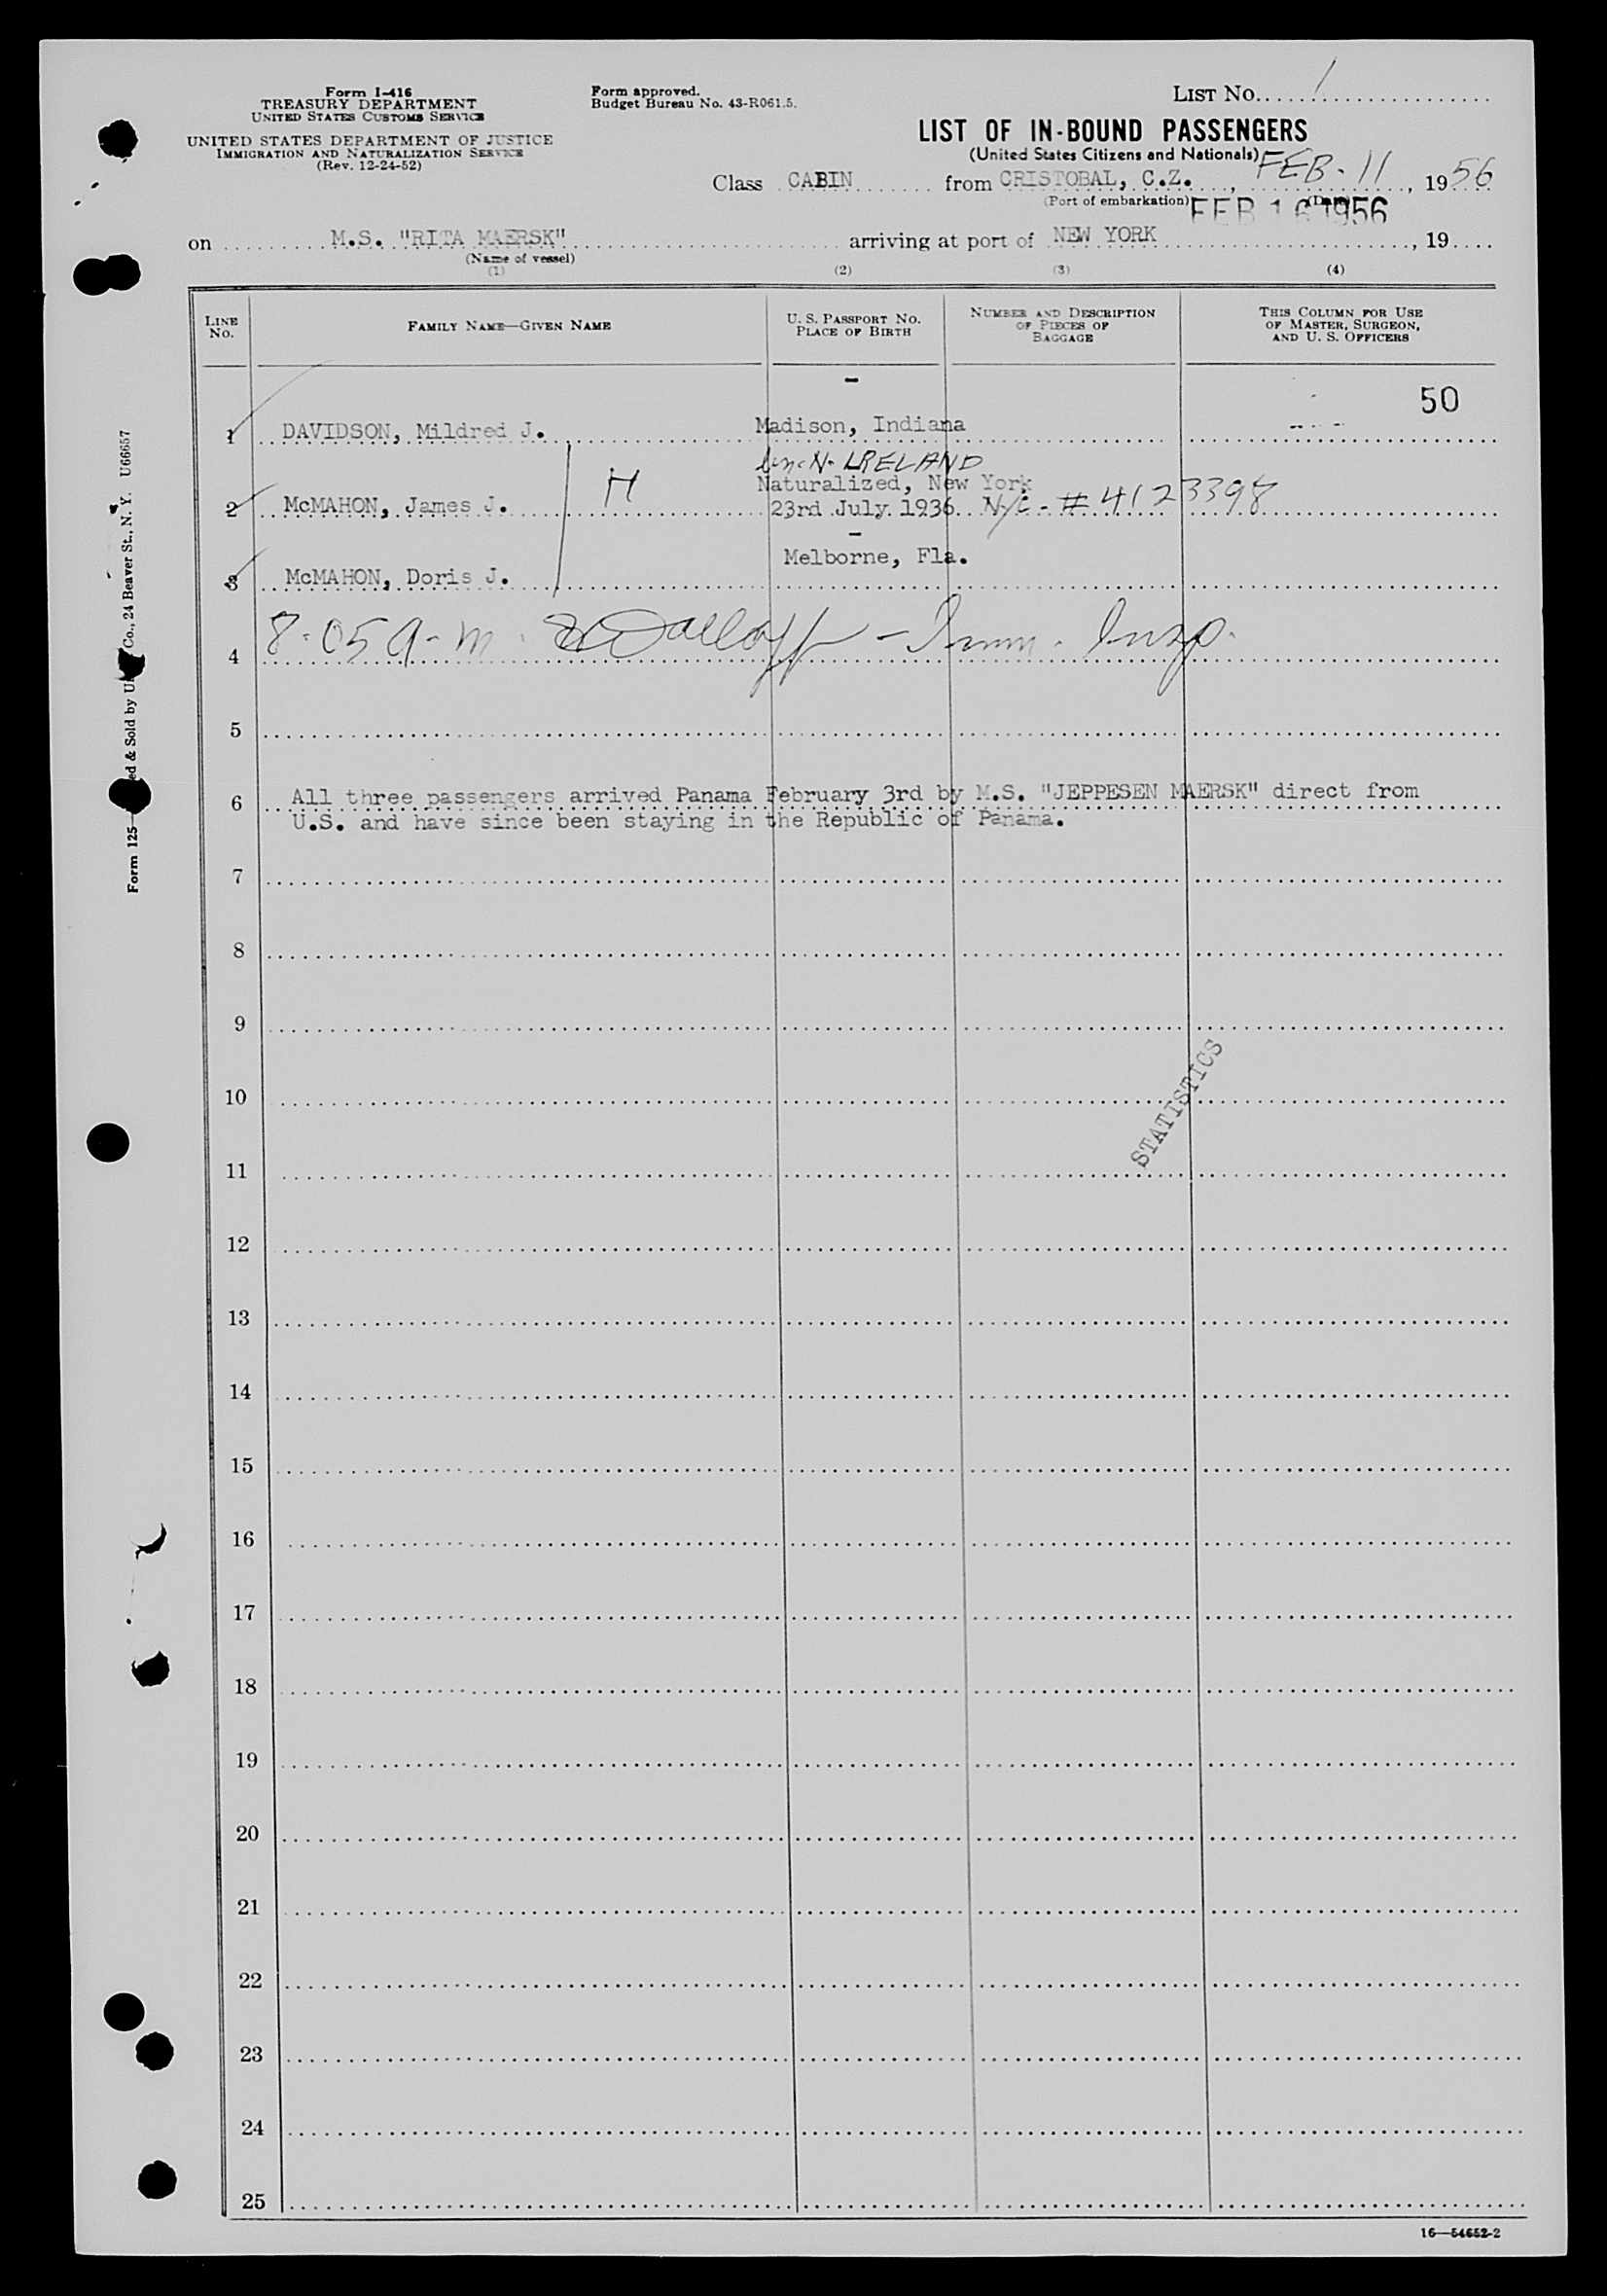 Form I-416
TREASURY DEPARTMENT
UNITED STATES CUSTOMS SERVICE
UNITED STATES DEPARTMENT OF JUSTICE
IMMIGRATION AND NATURALIZATION SERVICE
(Rev. 12-24-52)
Form approved.
Budget Bureau No. 43-R061.5.
LIST NO. 1
LIST OF IN-BOUND PASSENGERS
(United States Citizens and Nationals)
Class CABIN from CRISTOBAL, C.Z., FEB-11, 1956
(Port of embarkation) (Date)
FEB 16 1956
on M.S. "RITA MAERSK" arriving at port of NEW YORK, 19
(Name of vessel)
(1) (2) (3) (4)
LINE NO.
FAMILY NAME—GIVEN NAME
U. S. PASSPORT NO.
PLACE OF BIRTH
NUMBER AND DESCRIPTION
OF PIECES OF
BAGGAGE
THIS COLUMN FOR USE
OF MASTER, SURGEON,
AND U. S. OFFICERS
-
50
1 DAVIDSON, Mildred J. Madison, Indiana
N. IRELAND
Naturalized, New York
2 McMAHON, James J. H 23rd July 1936 N/C - # 4123398
-
Melborne, Fla.
3 McMAHON, Doris J.
4 8-05 a-m. - Imm. Insp.
5
6 All three passengers arrived Panama February 3rd by M.S. "JEPPESEN MAERSK" direct from
U.S. and have since been staying in the Republic of Panama.
7
8
9
10
STATISTICS
11
12
13
14
15
16
17
18
19
20
21
22
23
24
25
16—54652-2
Form 125— ed & Sold by Co., 24 Beaver St., N. Y. U66657